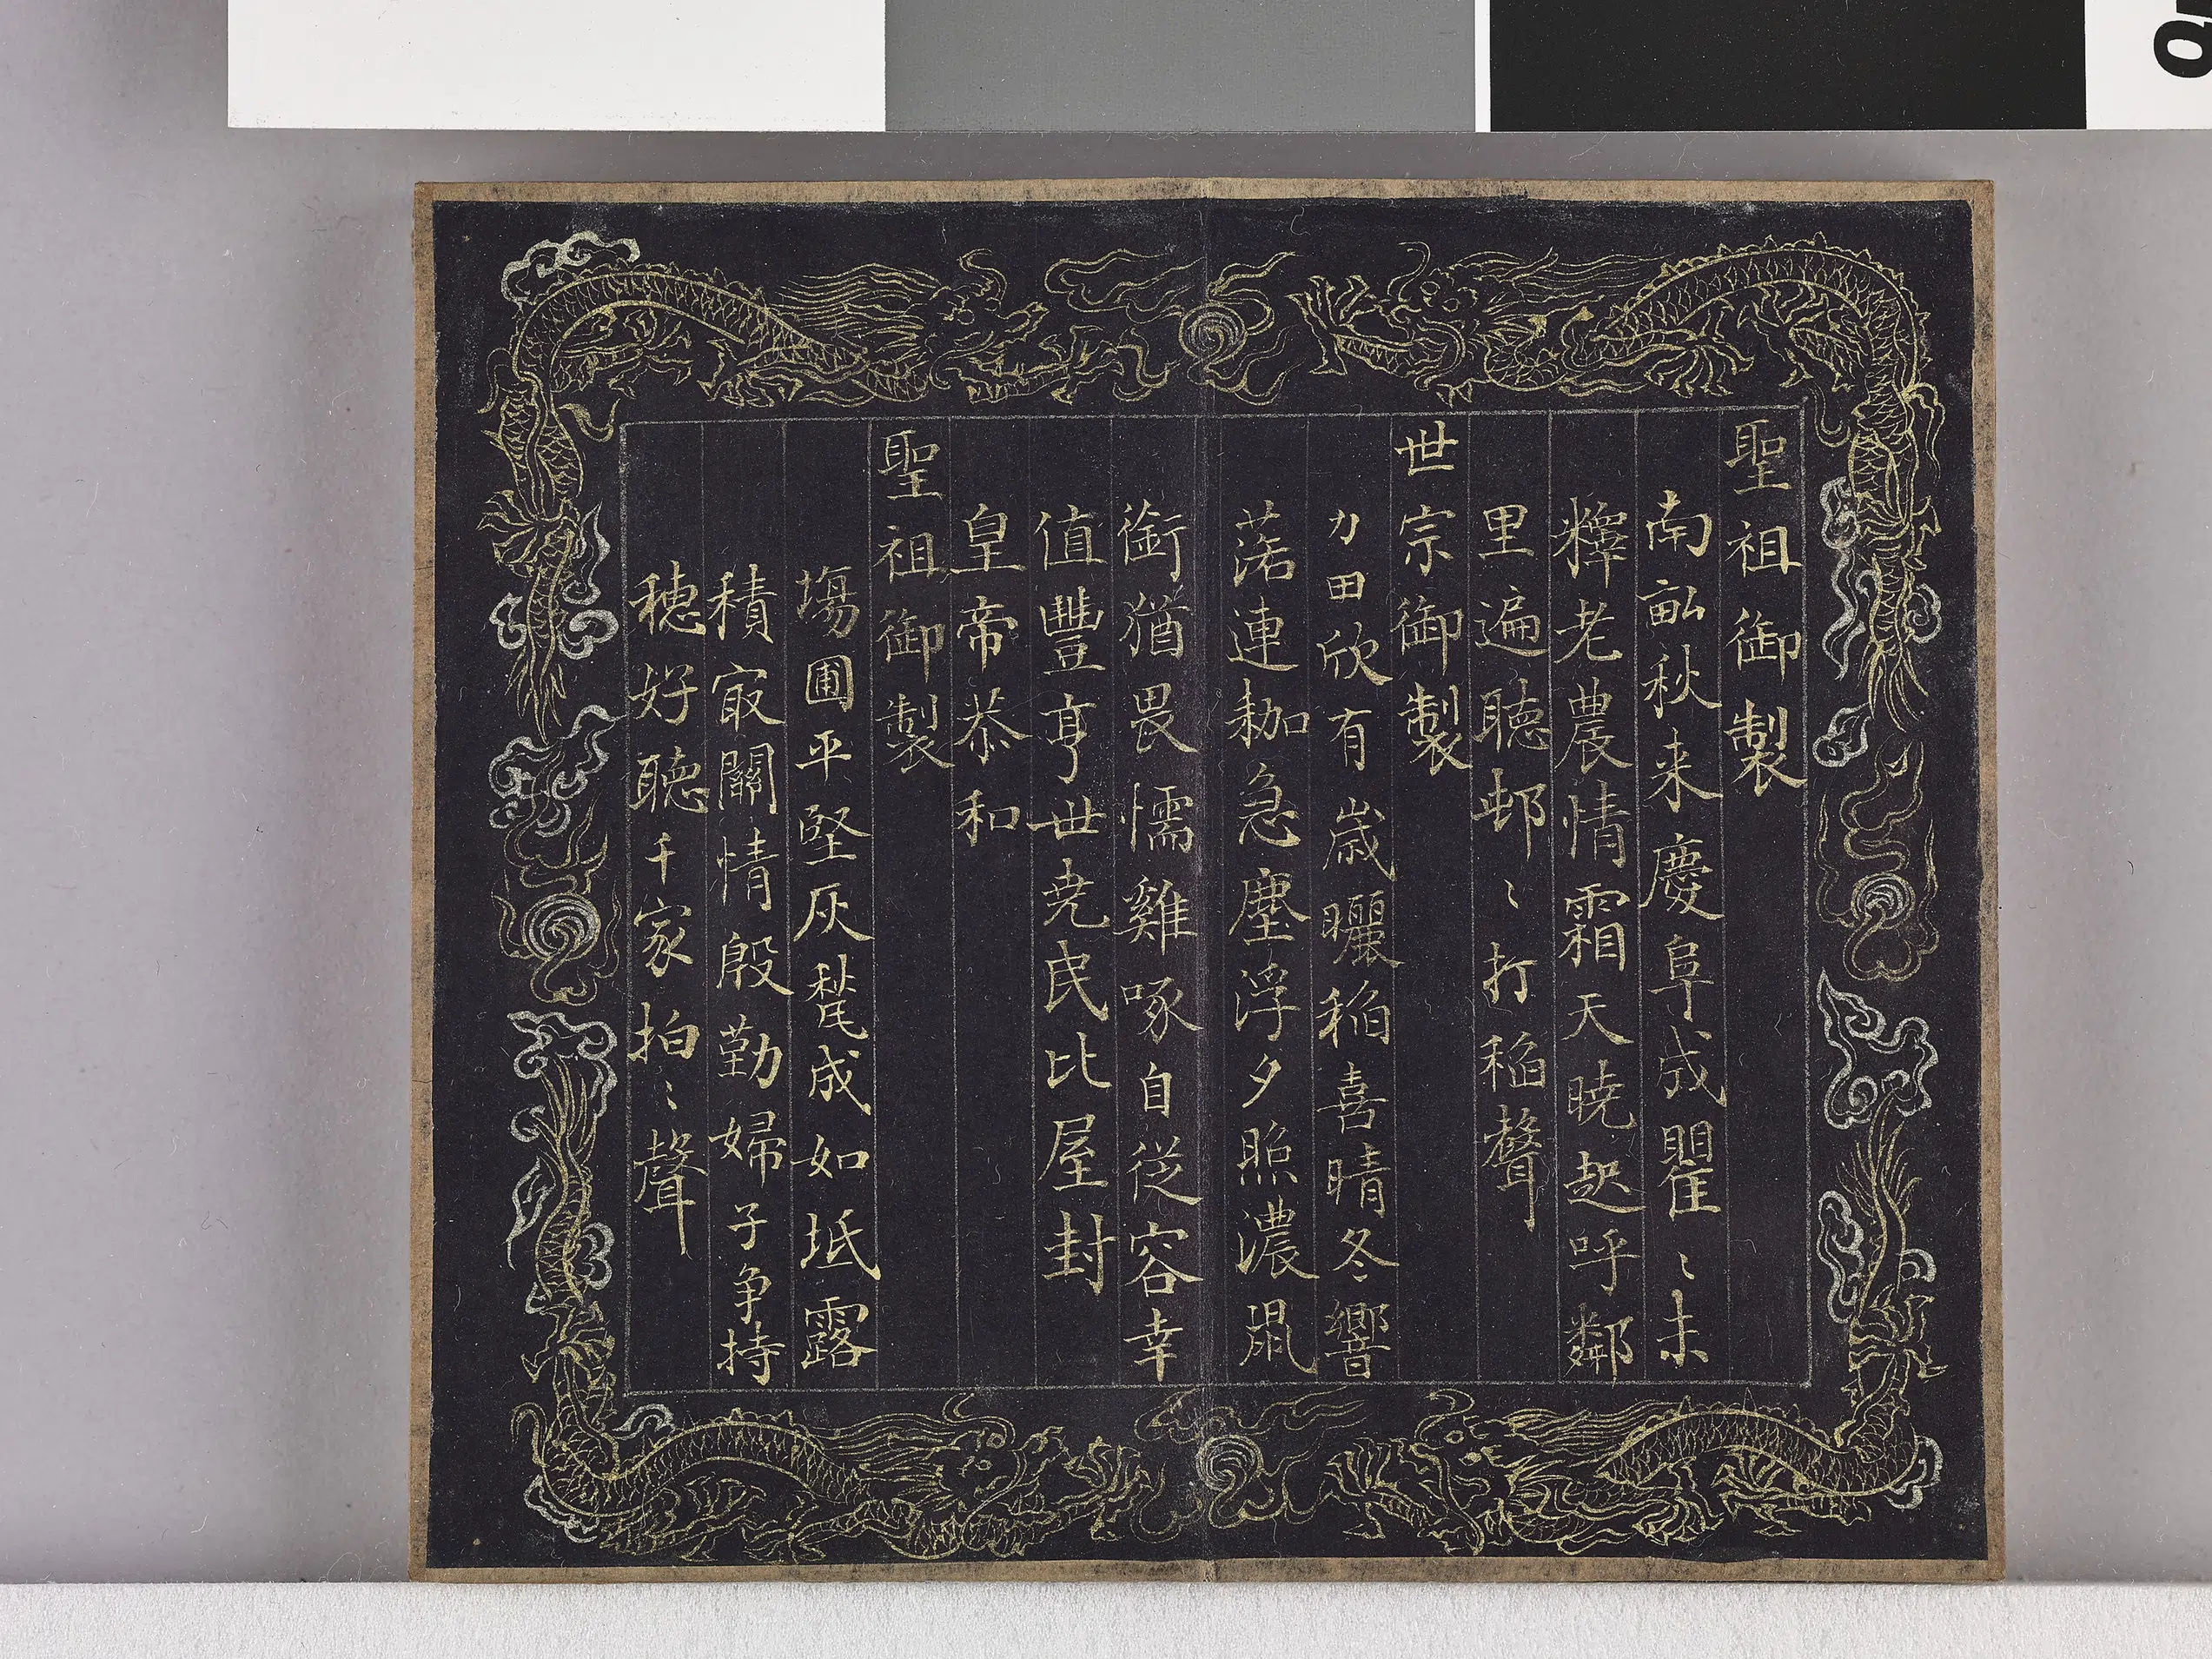 聖祖御製
南畝秋来慶阜成瞿〻未
釋老農情霜天曉起呼鄰
里遍聴邨〻打稲聲
世宗御製
力田欣有歳曬稲喜晴冬響
落連耞急塵浮夕照濃鼠
銜猶畏懦雞啄自從容幸
值豐亨世尭民比屋封
皇帝恭和
聖祖御製
塲圃平堅灰甃成如坻露
積冣關情殷勤婦子争持
穂好聴千家拍〻聲